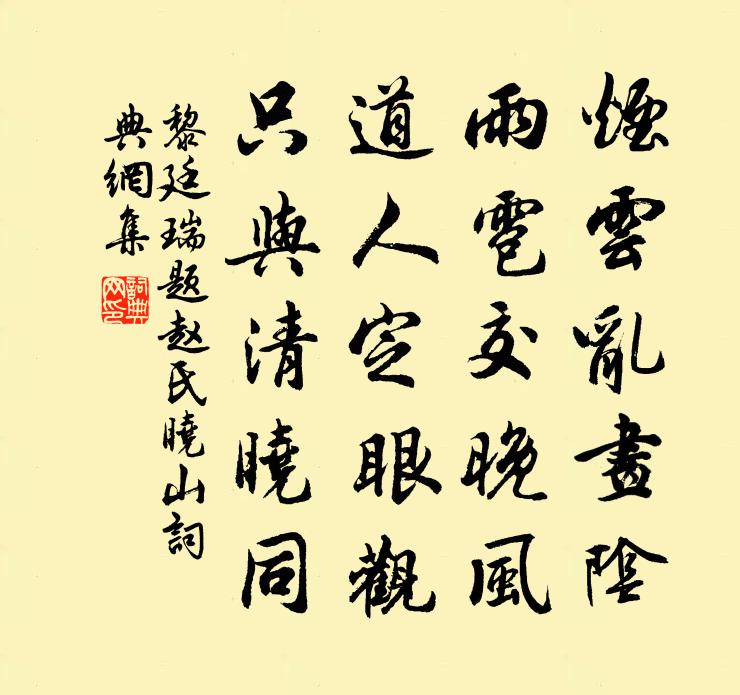 煙雲亂晝陰
雨雹交晚風
道人定眼觀
只與清曉同
黎廷瑞題赵氏曉山詞
典網集
詞典
网印